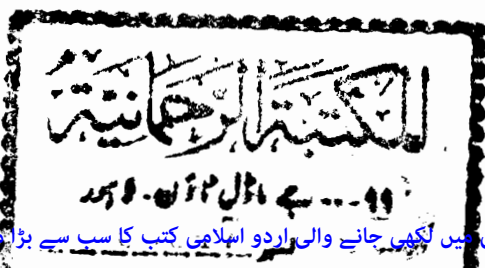 المكتبة الرحمانية
۹۹۔۔۔ جے ماڈل ٹاؤن۔ لاہور
میں لکھی جانے والی اردو اسلامی کتب کا سب سے بڑا